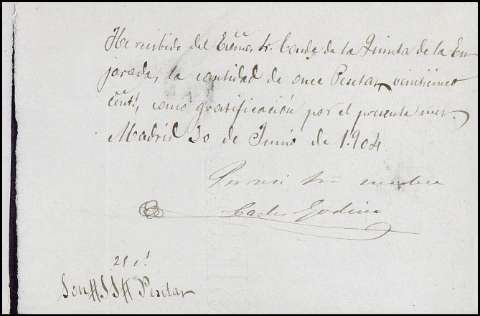 He recibido del Exčmo. Sr. Conde de la Quinta de la En
jarada, la cantidad de once Pesetas veinticinco
cénts, como gratificación por el presente mes.
Madrid 30 de Junio de 1.904
Carlos Godino
Son 11